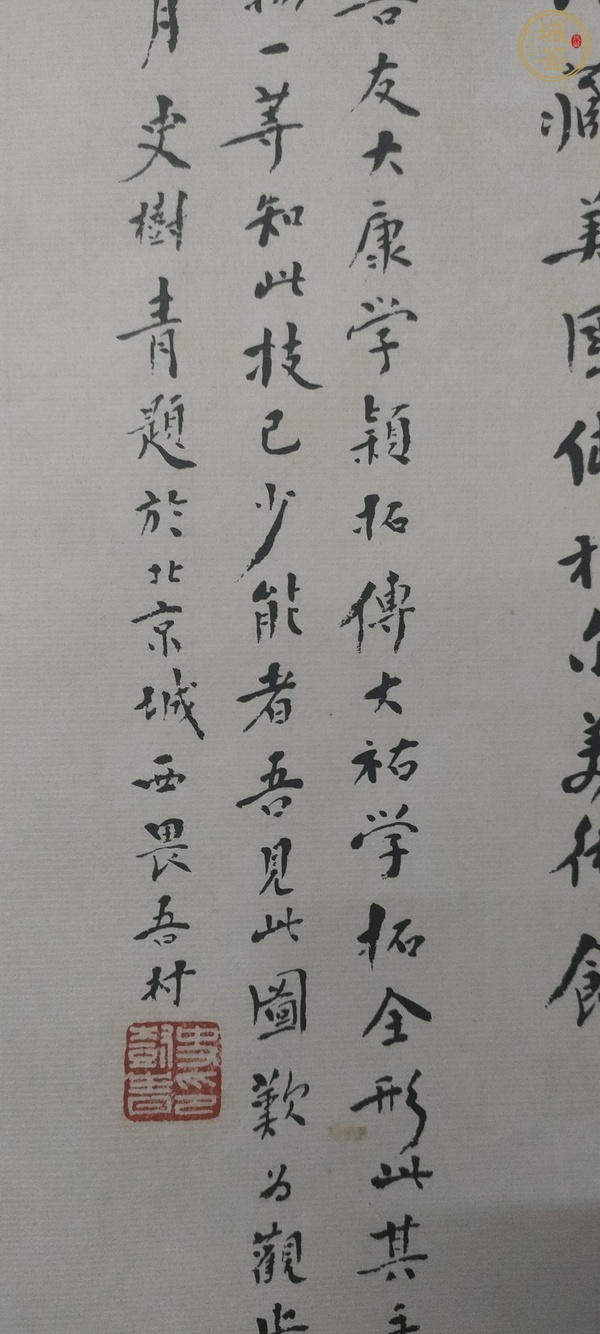 藏美国佛利尔美術館
吾友大康学穎拓傅大祐学拓全形此其
一等知此技已少能者吾見此圖歎为觀止
月史樹青題於北京城西畏吾村
史樹青印